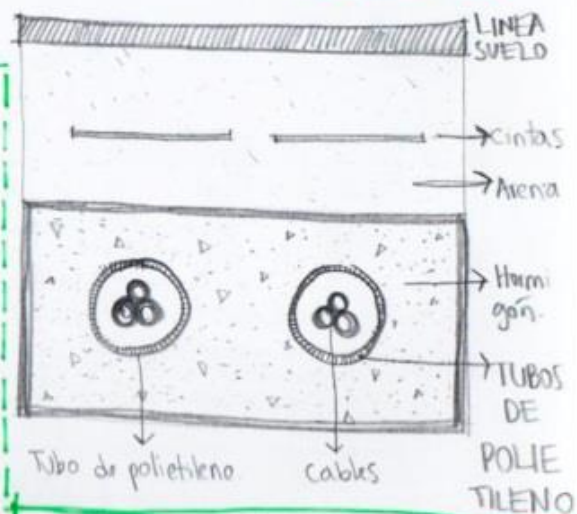 LINEA
SUELO
Cintas
Arena
Hormi
gón.
TUBOS
DE
POLIE
TILENO
Tubo de polietileno.
Cables